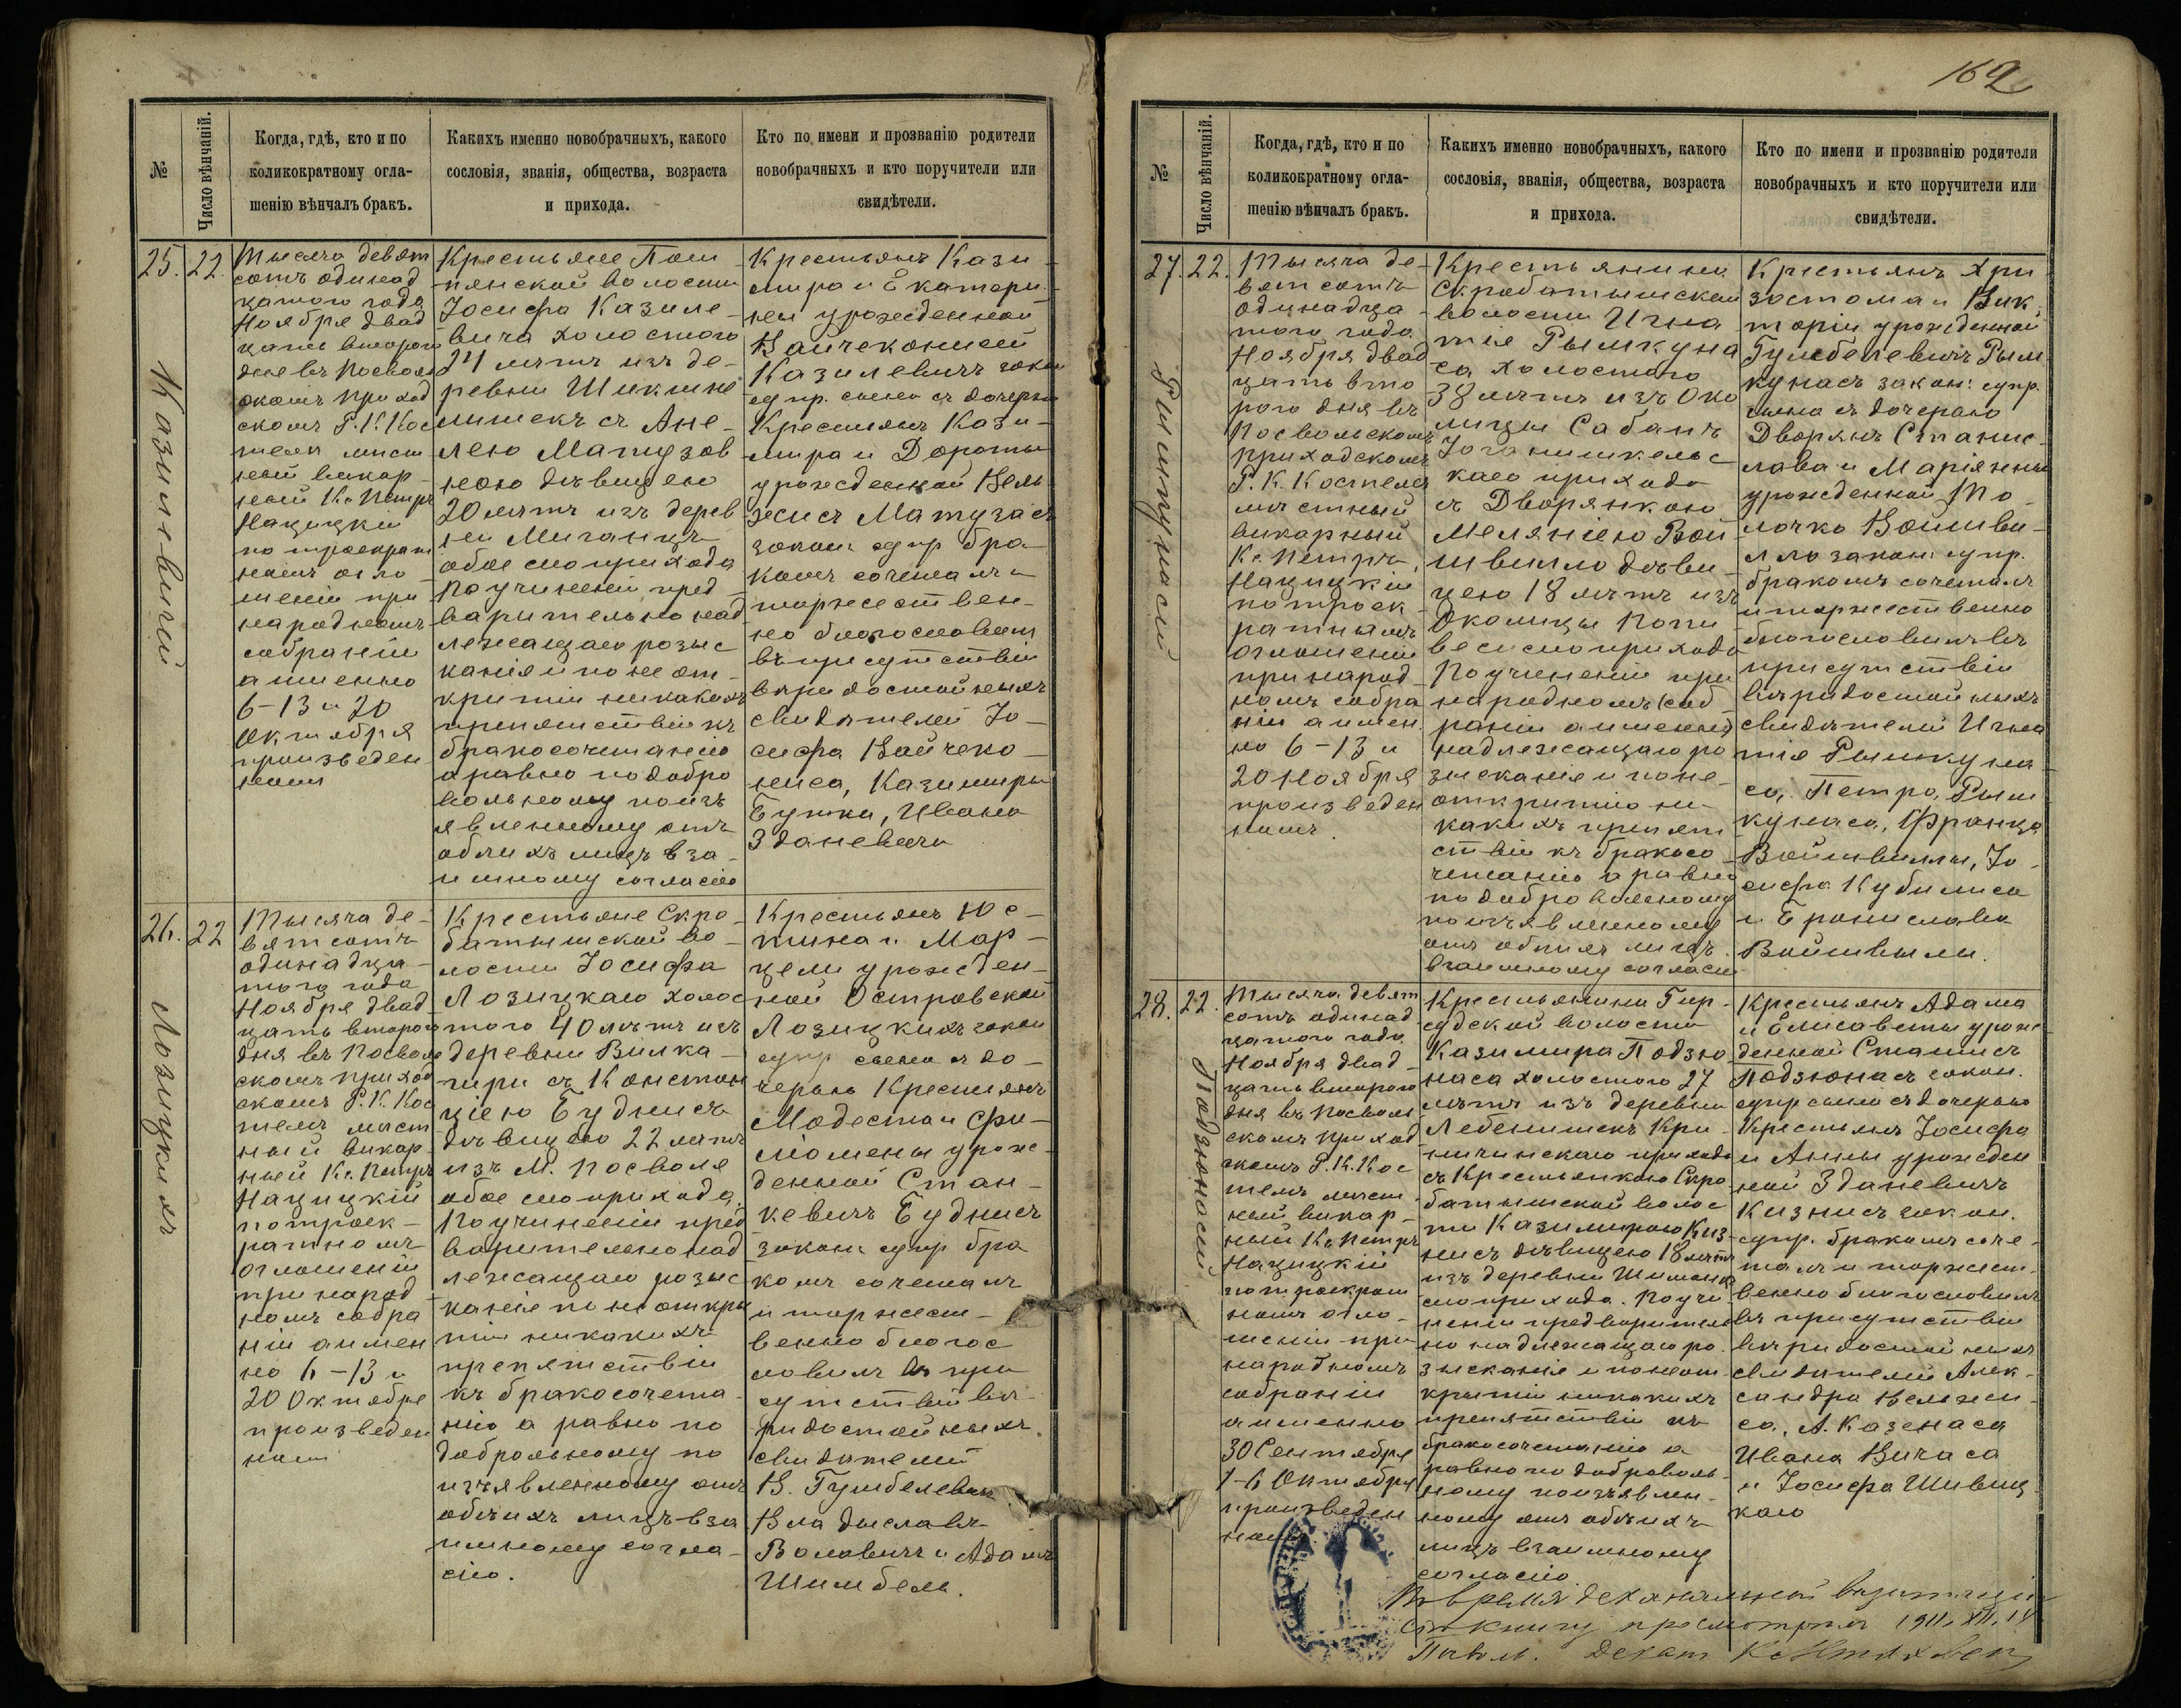 162
№
Число вѣнчаній.
Когда, гдѣ, кто и по
коликократному огла-
шенію вѣнчалъ бракъ.
Какихъ именно новобрачныхъ, какого
сословія, званія, общества, возраста
и прихода.
Кто по имени и прозванію родители
новобрачныхъ и кто поручители или
свидѣтели.
25.
22.
Казилевичи
Тысяча девят
сотъ одинад
цатого года
Ноября двад
цать второго
дня въ Посволь
скомъ приход
скомъ Р. К. Кос
телѣ мѣст
ный викар
ный Кс. Петръ
Нацицкій
по троекрат
номъ огло
шеніи при
народномъ
собраніи
а именно
6-13 и 20
Октября
произведен
номъ
Крестьяне Пом
пянской волости
Іосифа Казиле-
вича холостого
24 лѣтъ изъ де-
ревни Шикшне
лишекъ съ Ане-
лею Матузов
ною дѣвицею
20 лѣтъ изъ дерев
ни Миганцъ
обое сл. прихода
По учиненіи пред
варительно над
лежащаго розыс
канія и по не от-
крытіи никакихъ
препятствій къ
бракосочетанію
а равно по добро
вольному по изъ
явленному отъ
обѣихъ лицъ вза
имному согласію
Крестьянъ Кази-
мира и Екатери-
ны урожденной
Войчеконисъ
Казилевичъ закон
супр. сына съ дочерью
Крестьянъ Кази-
мира и Дороты
урожденной Вель
жисъ Матузасъ
закон: супр бра-
комъ сочеталъ и
торжествен-
но благословилъ
въ присутствіи
вѣридостойныхъ
свидѣтелей Іо-
сифа Войчеко-
ниса, Казимира
Бутка, Ивана
Зданевича
26.
22
Лозицкихъ
Тысяча де-
вятсотъ
одинадца-
того года
Ноября двад
цать второго
дня въ Посволь
скомъ приход
скомъ Р. К. Кос
телѣ мѣст
ный викар
ный Кс. Петръ
Нацицкій
по троек-
ратномъ
оглошеніи
при народ
номъ собра
ніи а имен
но 6-13 и
20 Октября
произведен
номъ
Крестьяне Скро-
батышской во-
лости Іосифа
Лозицкаго холос
того 40 лѣтъ изъ
деревни Вилка-
гири съ Констан
ціею Буднисъ
дѣвицею 22 лѣтъ
изъ М. Посволя
обое сл. прихода.
По учиненіи пред
варительно над
лежащаго розыс
канія по не откры
тіи никакихъ
препятствій
къ бракосочета
нію а равно по
добровольному по
изъявленному отъ
обѣихъ лицъ вза
имному согла-
сію.
Крестьянъ Юс-
тина и Мар-
цели урожден-
ной Островской
Лозицкихъ закон
супр сына съ до-
черью Крестьянъ
Модеста и Фи-
ломены урож-
денной Стан-
кевичъ Буднисъ
закон: супр бра
комъ сочеталъ
и торжест-
венно благос
ловилъ въ при
сутствіи вѣ-
ридостойныхъ
свидѣтелей
В. Гумбелевича
Владыславъ
Воловичъ и Адамъ
Шимбель.
27.
22.
Рымкунасы
Тысяча де-
вятсотъ
одинадца
того года
Ноября двад
цать вто
рого дня въ
Посвольскомъ
приходскомъ
Р. К. Костелѣ
мѣстный
викарный
Кс. Петръ
Нацицкій
по троек
ратномъ
оглошеніи
при народ
номъ собра
ніи а имен
но 6-13 и
20 Ноября
произведен
номъ.
Крестьянина
Скробатышской
волости Игна
тія Рымкуна
са холостого
38 лѣтъ изъ Око
лицы Сабанъ
Іоганишкельс
каго прихода
съ Дворянкою
Меляніею Вой
швилло дѣви-
цею 18 лѣтъ изъ
Околицы Попи
веси сл. прихода
По учиненіи при
народномъ соб
раніи а именно
надлежащаго ро
зысканія и по не
открытію ни
какихъ препят
ствій къ бракосо
четанію а равно
по добровольному
по изъявленному
отъ обѣихъ лицъ
взаимному соглас
Крестьянъ Хри
зостома и Вик
торіи урожденной
Гумбелевичъ Рым
кунасъ закон: супр.
сына съ дочерью
Дворянъ Станис-
лава и Маріянны
урожденной То
лочко Войшви-
лло закон: супр.
бракомъ сочеталъ
и торжественно
благословилъ въ
присутствіи
вѣридостойныхъ
свидѣтелей Игна
тія Рымкуна
са, Петра Рым
кунаса, Франца
Войшвиллы, Іо
сифа Кубилиса
и Бронислава
Войшвылы.
28.
22.
Подзюнасы
Тысяча девят
сотъ одинад
цатого года
Ноября двад
цать второго
дня въ Посволь
скомъ приход
скомъ Р. К. Кос
телѣ мѣст
ный викар-
ный Кс. Петръ
Нацицкій
по троекрат
номъ огло-
шеніи при
народномъ
собраніи
а именно
30 Сентября
1-6 Октября
произведен
номъ
Крестьянина Гир
судской волости
Казимира Подзю
наса холостого 27
лѣтъ изъ деревни
Лебенишекъ Кри-
ничинскаго прихода
съ Крестьянкою Скро
батышской волос
ти Казимирою Киз-
нисъ дѣвицею 18 лѣтъ
изъ деревни Шиманцъ
сл. прихода. По учи
неніи предваритель
но надлежащаго ро
зысканія и по не от
крытіи никакихъ
препятствій къ
бракосочетанію а
равно по доброволь
ному по изъявлен-
ному отъ обѣихъ
лицъ взаимному
согласію
Крестьянъ Адама
и Елисаветы урож
денной Стамисъ
Подзюнасъ закон.
супр сына съ дочерью
Крестьянъ Іосифа
и Анны урожден
ной Зданевичъ
Кизнисъ закон.
супр. бракомъ соче-
талъ и торжест-
венно благословилъ
въ присутствіи
вѣридостойныхъ
свидѣтелей Алек-
сандра Вельжи
са, А. Казенаса
Ивана Вичаса
и Іосифа Шивиц
каго
Во время деканальной визитаціи
сію книгу просмотрѣлъ 1911. XII. 18
Посвол. Декан